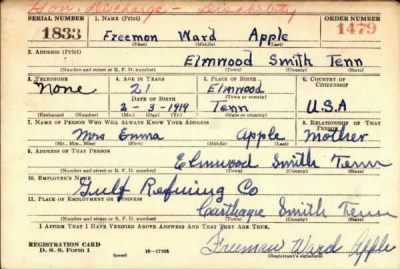 Hon. Discharge - Disability
SERIAL NUMBER 1. NAME (Print) ORDER NUMBER
1833 Freeman Ward Apple 1479
(First) (Middle) (Last)
2. ADDRESS (Print)
Elmwood Smith Tenn
(Number and street or R. F. D. number) (Town) (County) (State)
3. TELEPHONE 4. AGE IN YEARS 5. PLACE OF BIRTH 6. COUNTRY OF CITIZENSHIP
None 21 Elmwood
DATE OF BIRTH (Town or county)
2-3-1919 Tenn U.S.A
(Exchange) (No.) (Mo.) (Day) (Yr.) (State or country)
7. NAME OF PERSON WHO WILL ALWAYS KNOW YOUR ADDRESS 8. RELATIONSHIP OF THAT PERSON
Mrs Emma Apple Mother
(Mr., Mrs., Miss) (First) (Middle) (Last)
9. ADDRESS OF THAT PERSON
Elmwood Smith Tenn
(Number and street or R. F. D. number) (Town) (County) (State)
10. EMPLOYER'S NAME
Gulf Refining Co
11. PLACE OF EMPLOYMENT OR BUSINESS
Carthage Smith Tenn
(Number and street or R. F. D. number) (Town) (County) (State)
I AFFIRM THAT I HAVE VERIFIED ABOVE ANSWERS AND THAT THEY ARE TRUE.
REGISTRATION CARD
D. S. S. Form 1 (over) 16-17105 Freeman Ward Apple
(Registrant's signature)